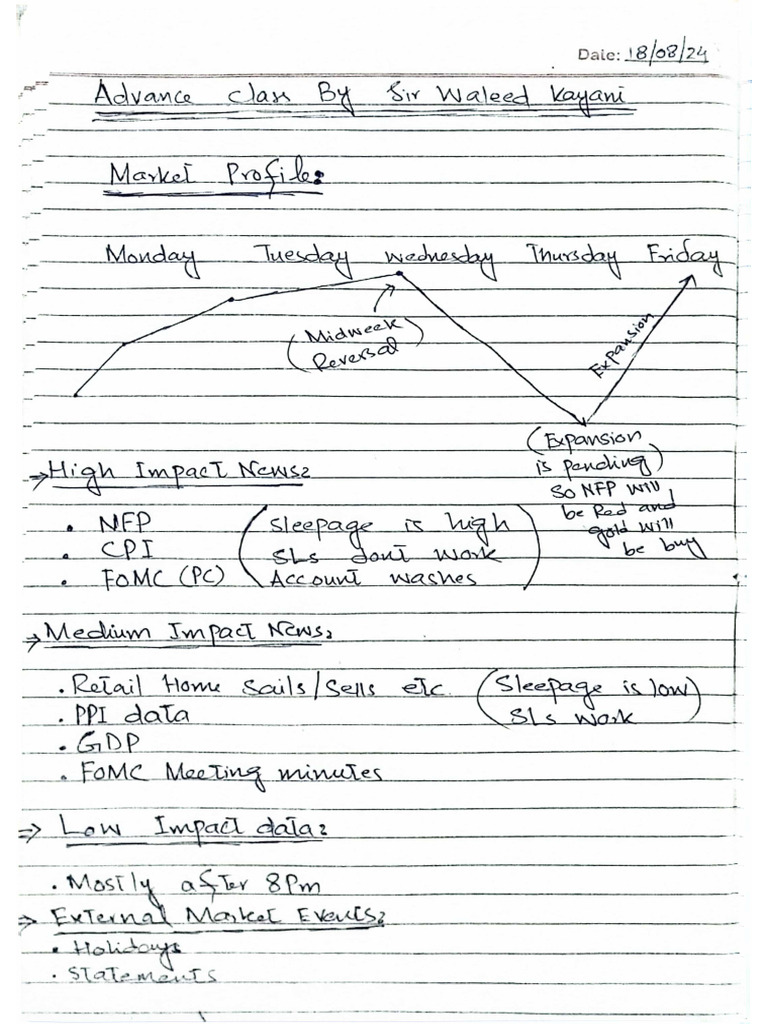 Date: 18/08/24
Advance class By Sir Waleed Kayani
Market Profile:
Monday Tuesday Wednesday Thursday Friday
(Midweek Reversal)
Expansion
(Expansion
is pending)
So NFP will
be Red and
gold will
be buy
⇒ High Impact News:
• NFP
• CPI
• FOMC (PC)
(Sleepage is high
SLs dont work
Account washes)
⇒ Medium Impact News:
• Retail Home Sails/Sells etc. (Sleepage is low)
• PPI data (SLs work)
• GDP
• FOMC Meeting minutes
⇒ Low Impact data:
• Mostly after 8Pm
⇒ External Market Events:
• Holidays
• Statements